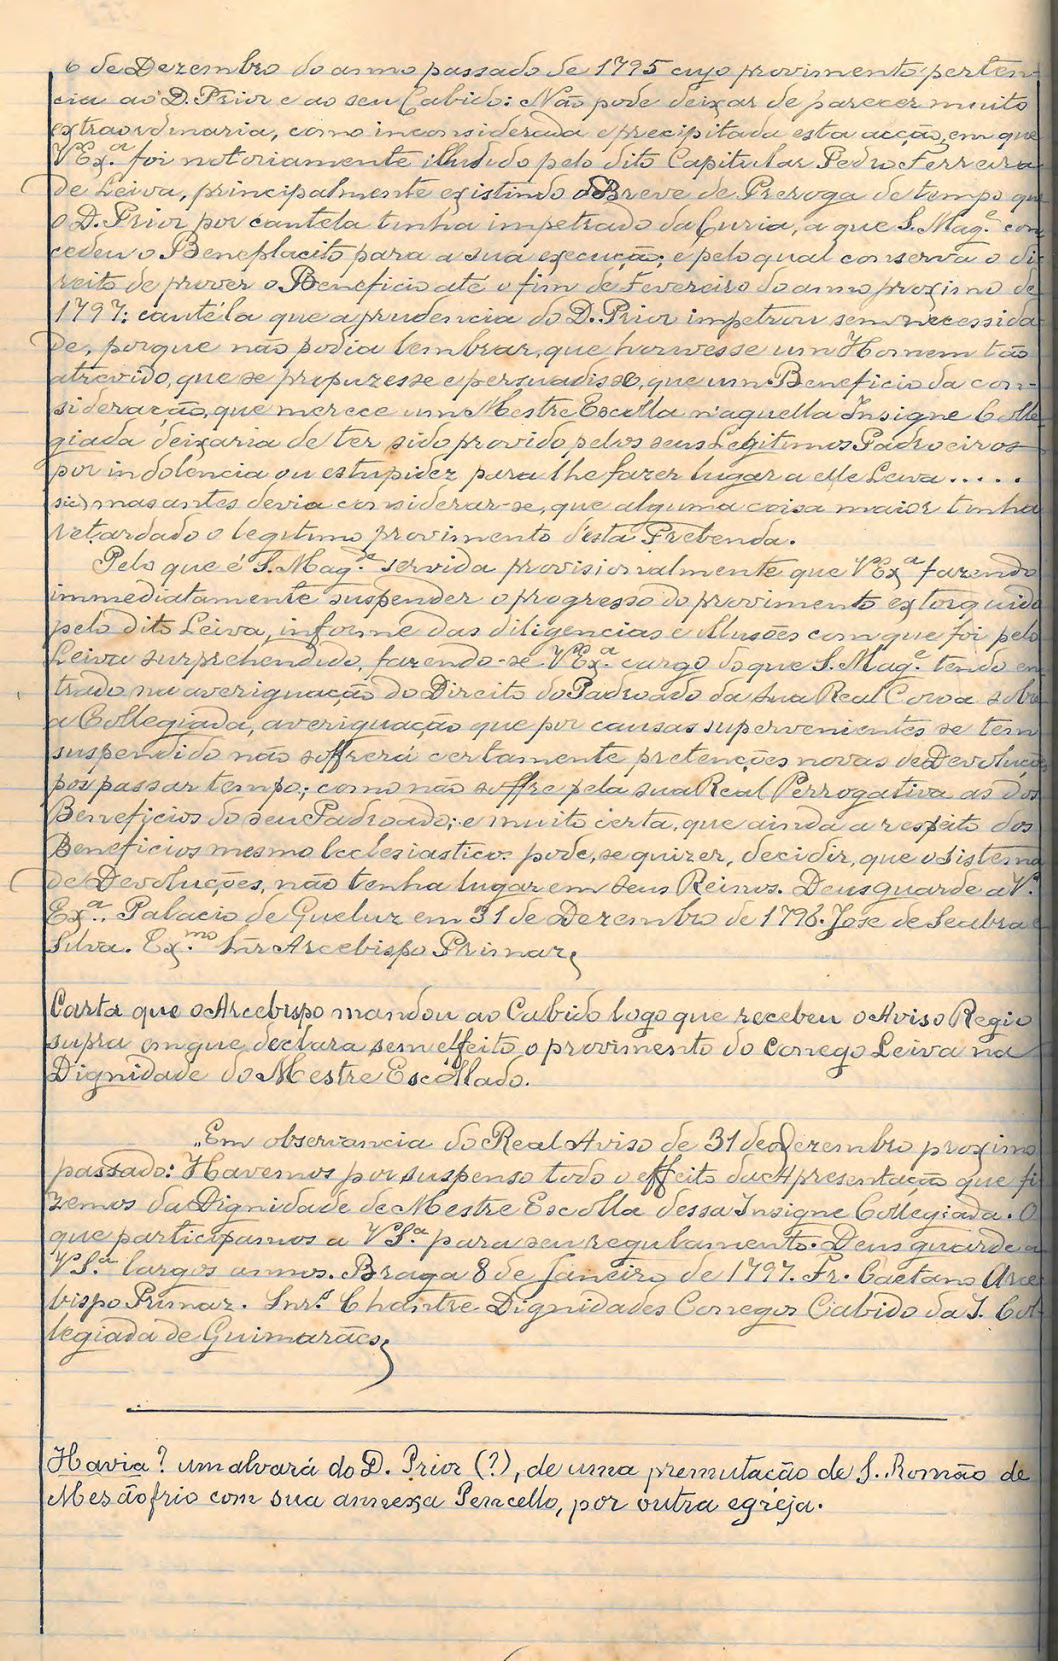 6 de Dezembro do anno passado de 1795 cujo provimento perten-
cia ao D. Prior e ao seu Cabido: Não pode deixar de parecer muito
extraordinaria, como inconsiderada e precipitada esta acção, em que
V Ex.ª foi notoriamente illudido pelo dito Capitular Pedro Ferreira
de Leiva, principalmente existindo o Breve de Preroga de tempo que
o D. Prior por cautela tinha impetrado da Curia, a que S. Mag.e con
cedeu o Beneplacito para a sua execução; e pelo qual conserva o di
reito de prover o Beneficio até o fim de Fevereiro do anno proximo de
1797: cautéla que a prudencia do D. Prior impetrou sem necessida
de, porque não podia lembrar, que houvesse um Homem tão
atrevido, que se propuzesse e persuadisse, que um Beneficio da con-
sideração, que merece um Mestre Escolla n'aquella Insigne Colle
giada deixaria de ter sido provido pelos seus Legitimos Padroeiros
por indolencia ou estupidez para lhe fazer lugar a elle Leiva.....
sic) mas antes devia considerar-se, que alguma coisa maior tinha
retardado o legitimo provimento d'esta Prebenda.
Pelo que é S. Mag.e servida provisionalmente que V Ex.ª fazendo
immediatamente suspender o progresso do provimento extorquido
pelo dito Leiva, informe das diligencias e illusões com que foi pelo
Leiva surprehendido, fazendo-se V Ex.ª cargo do que S. Mag.e tendo en
trado na averiguação do Direito do Padroado da sua Real Coroa sobre
a Collegiada, averiguação que por causas supervenientes se tem
suspendido não soffrerá certamente pretenções novas de Devoluçõ
por passar tempo; como não soffre pela sua Real Perrogativa as dos
Beneficios do seu Padroado; e muito certa, que ainda a respeito dos
Beneficios mesmo Ecclesiasticos pode, se quizer, decidir, que o sistema
de Devoluções, não tenha lugar em seus Reinos. Deus guarde a V.
Ex.ª. Palacio de Queluz em 31 de Dezembro de 1796. José de Seabra e
Silva. Ex.mo Snr Arcebispo Primaz
Carta que o Arcebispo mandou ao Cabido logo que recebeu o Aviso Regio
supra em que declara sem effeito o provimento do Conego Leiva na
Dignidade do Mestre Escollado.
„Em observancia do Real Aviso de 31 de Dezembro proximo
passado: Havemos por suspenso todo o effeito da Apresentação que fi
zemos da Dignidade de Mestre Escolla dessa Insigne Collegiada. O
que participamos a V S.ª para seu regulamento. Deus guarde a
V S.ª largos annos. Braga 8 de Janeiro de 1797. Fr. Caetano Arce
bispo Primaz. Snr.s Chantre Dignidades Conegos Cabido da I. Col-
legiada de Guimarães
Havia? um alvará do D. Prior (?), de uma premutação de S. Romão de
Mesãofrio com sua annexa Pencello, por outra egreja.